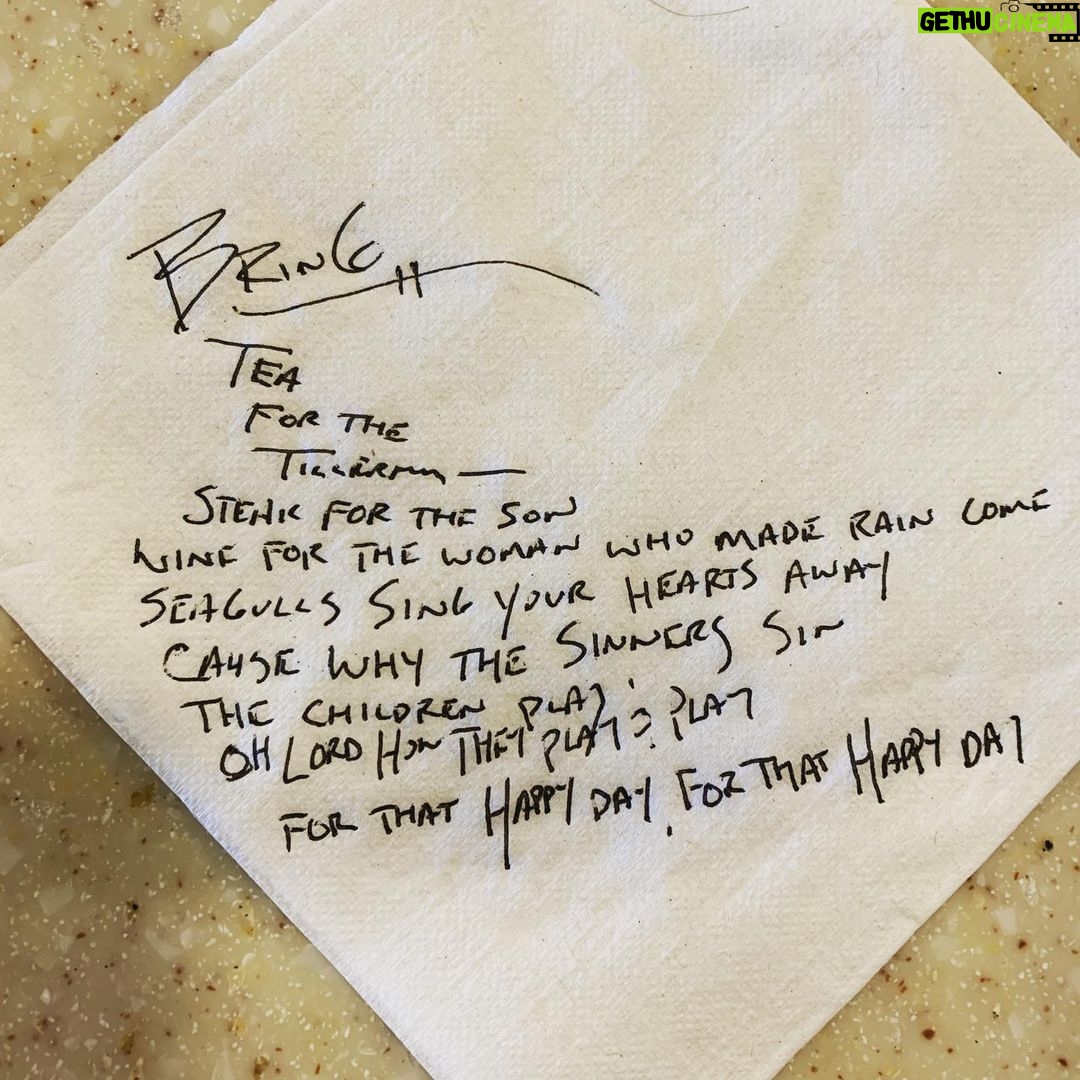 GETHUCINEMA
BRING
TEA
FOR THE
TILLERMAN —
STEAK FOR THE SON
WINE FOR THE WOMAN WHO MADE RAIN COME
SEAGULLS SING YOUR HEARTS AWAY
CAUSE WHY THE SINNERS SIN
THE CHILDREN PLAY
OH LORD HOW THEY PLAY & PLAY
FOR THAT HAPPY DAY, FOR THAT HAPPY DAY